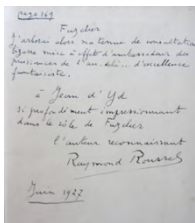 Page 169
Fuzelier
J'arborai alors ma tenue de consultation
bizarre mais à effet d'ambassadeur des
puissances de l'au-delà... d'excellence
fantaisiste.
à Jean d'Yd
si profondément impressionnant
dans le rôle de Fuzelier
l'auteur reconnaissant
Raymond Roussel
Juin 1927